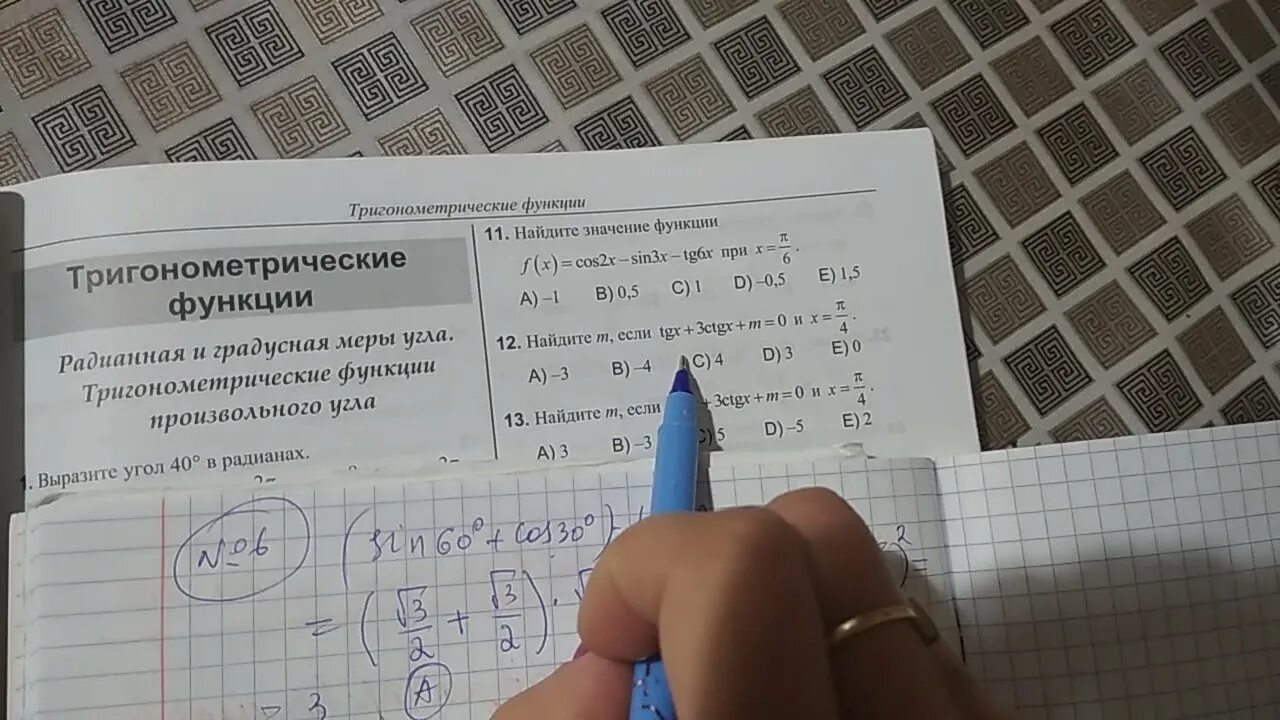 Тригонометрические функции
Тригонометрические
функции
Радианная и градусная меры угла.
Тригонометрические функции
произвольного угла
1. Выразите угол 40° в радианах.
11. Найдите значение функции
f(x)=cos2x−sin3x−tg6x при x=π/6.
A) –1 B) 0,5 C) 1 D) –0,5 E) 1,5
12. Найдите m, если tgx+3ctgx+m=0 и x=π/4.
A) –3 B) –4 C) 4 D) 3 E) 0
13. Найдите m, если + 3ctgx+m=0 и x=π/4.
A) 3 B) –3 C) 5 D) –5 E) 2
№6 (sin60°+cos30°) )²=
= (√3/2 + √3/2) ·
= 3 A